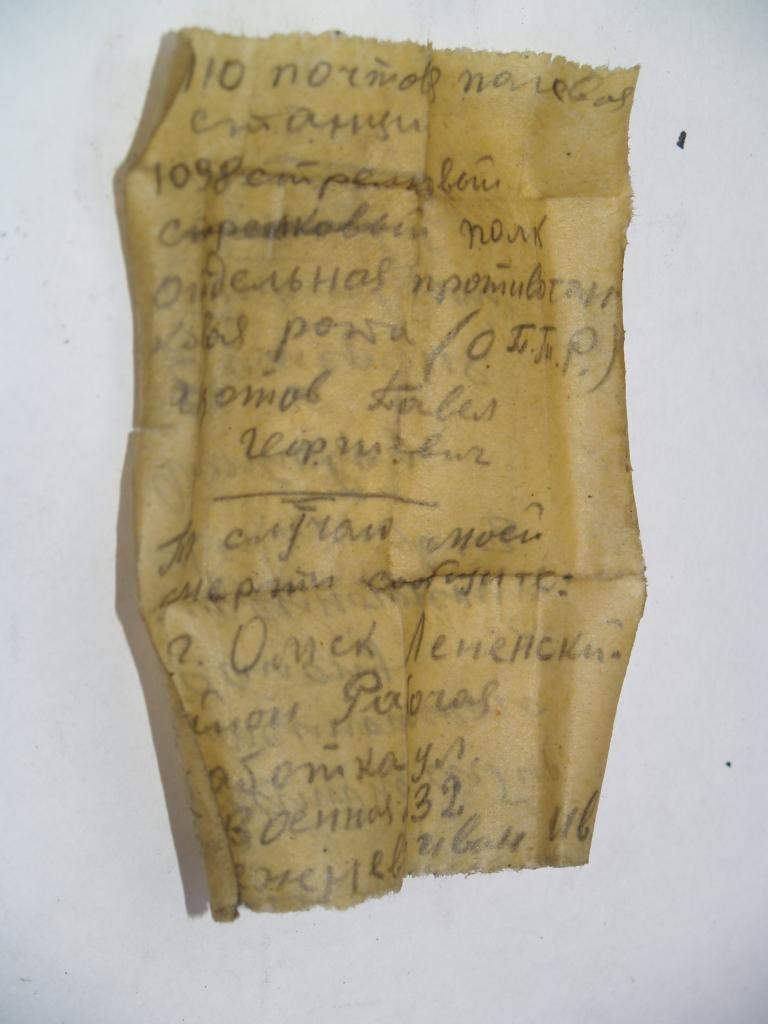 110 почтов полевая
станци
1098 стрелковый
стрелковый полк
отдельная противотан
ковая рота (О.П.Т.Р.)
Павел
Георгиевич
В случаю моей
смерти сообщите:
г. Омск Лененский
айон Рабочая
аботка ул.
Военная 32
Иван Ив